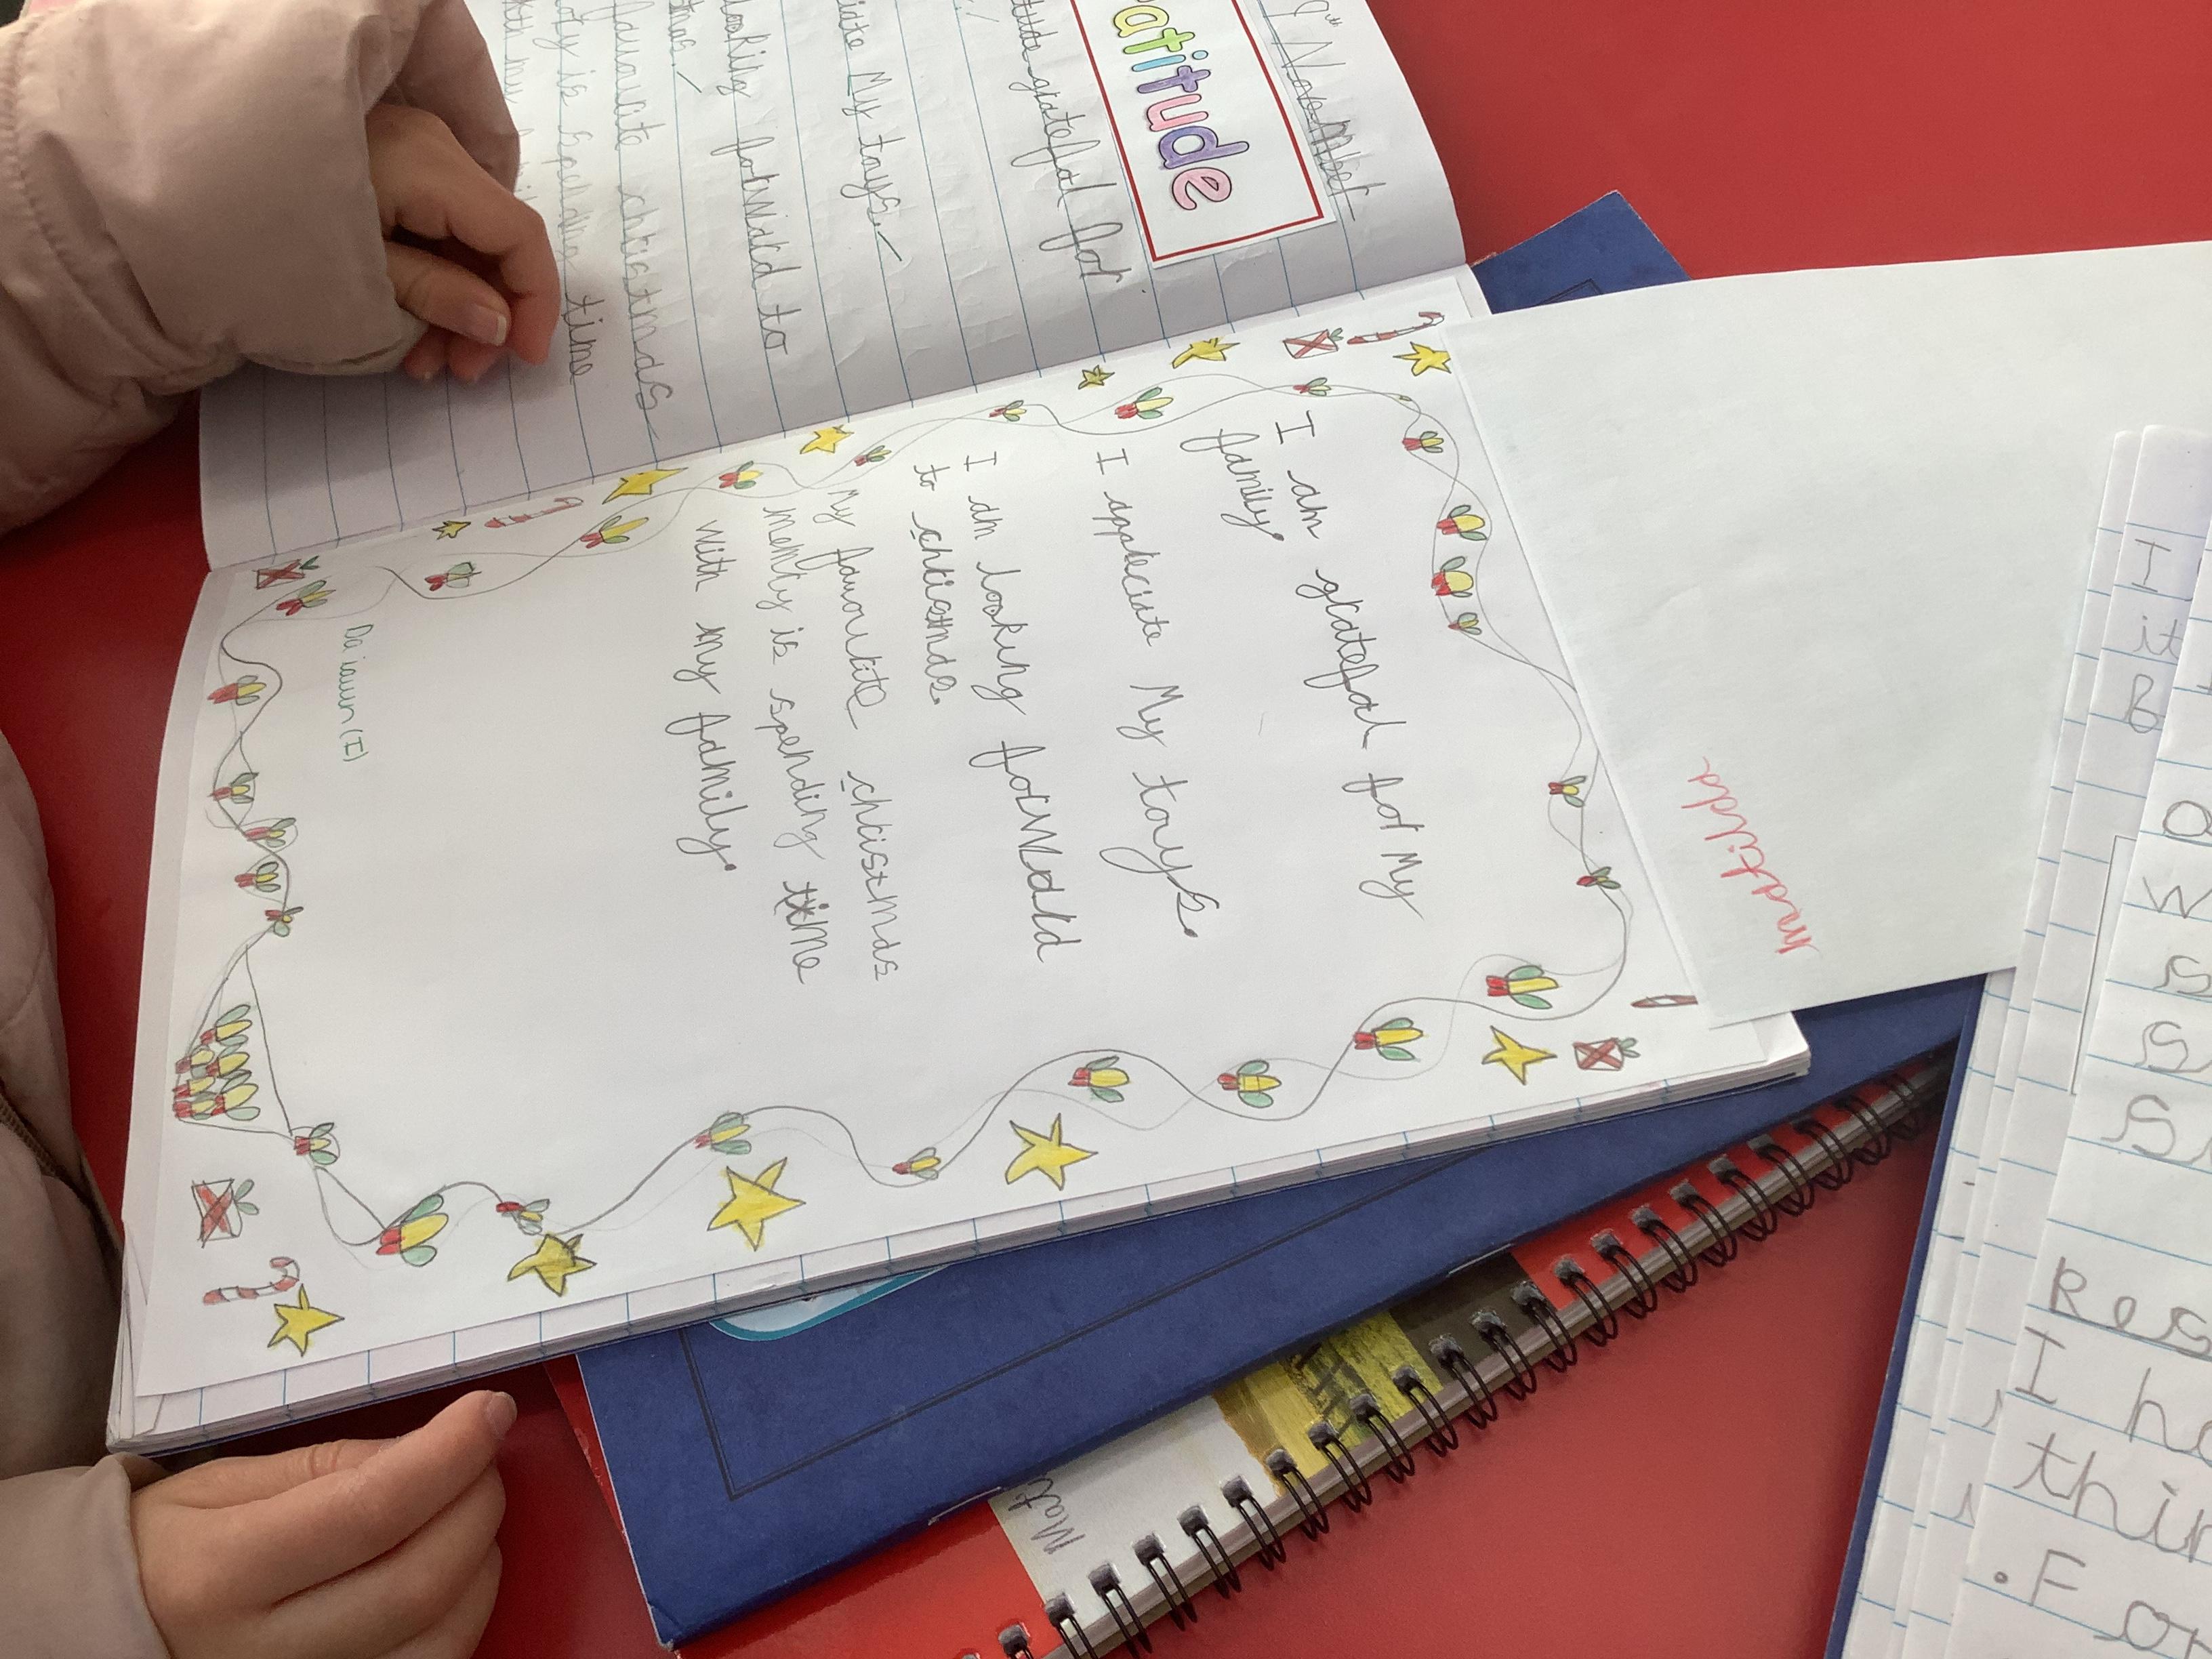 November
atitude
grateful for
My toys.
looking forward to
favourite christmas
is spending time
I am grateful for My
family.
I appreciate My toys.
I am looking forward
to christmas.
My favourite christmas
memry is spending time
with my family.
matilda
I
it
Mat
I
thin
.For